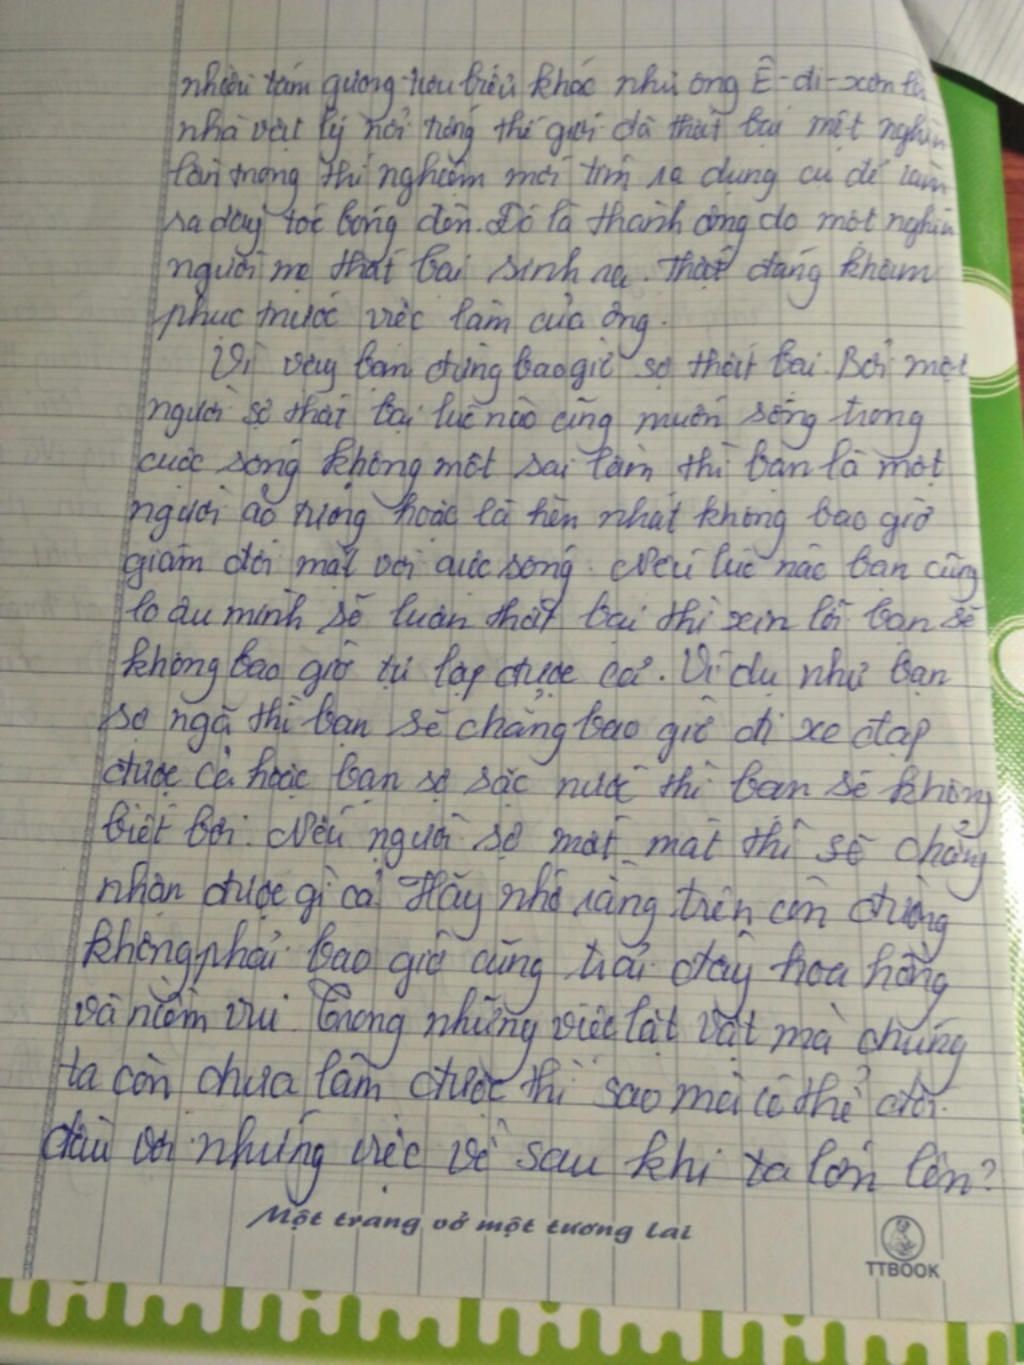 nhiều tấm gương tiêu biểu khác như ông Ê-đi-xơn là
nhà vật lý nổi tiếng thế giới đã thất bại một nghìn
lần trong thí nghiệm mới tìm ra dụng cụ để làm
ra dây tóc bóng đèn. Đó là thành công do một nghìn
người mẹ thất bại sinh ra. Thật đáng khâm
phục trước việc làm của ông.
Vì vậy bạn đừng bao giờ sợ thất bại. Bởi một
người sợ thất bại lúc nào cũng muốn sống trong
cuộc sống không một sai lầm thì bạn là một
người ảo tưởng hoặc là hèn nhát không bao giờ
giám đối mặt với cuộc sống. Nếu lúc nào bạn cũng
lo âu mình sẽ luôn thất bại thì xin lỗi bạn sẽ
không bao giờ tự lập được cả. Ví dụ như bạn
sợ ngã thì bạn sẽ chẳng bao giờ đi xe đạp
được cả hoặc bạn sợ sặc nước thì bạn sẽ không
biết bơi. Nếu người sợ mất mát thì sẽ chẳng
nhận được gì cả. Hãy nhớ rằng trên con đường
không phải bao giờ cũng trải đầy hoa hồng
và niềm vui. Trong những việc lặt vặt mà chúng
ta còn chưa làm được thì sao mà có thể đối
đầu với những việc về sau khi ta lớn lên?
Một trang vở một tương lai
TTBOOK